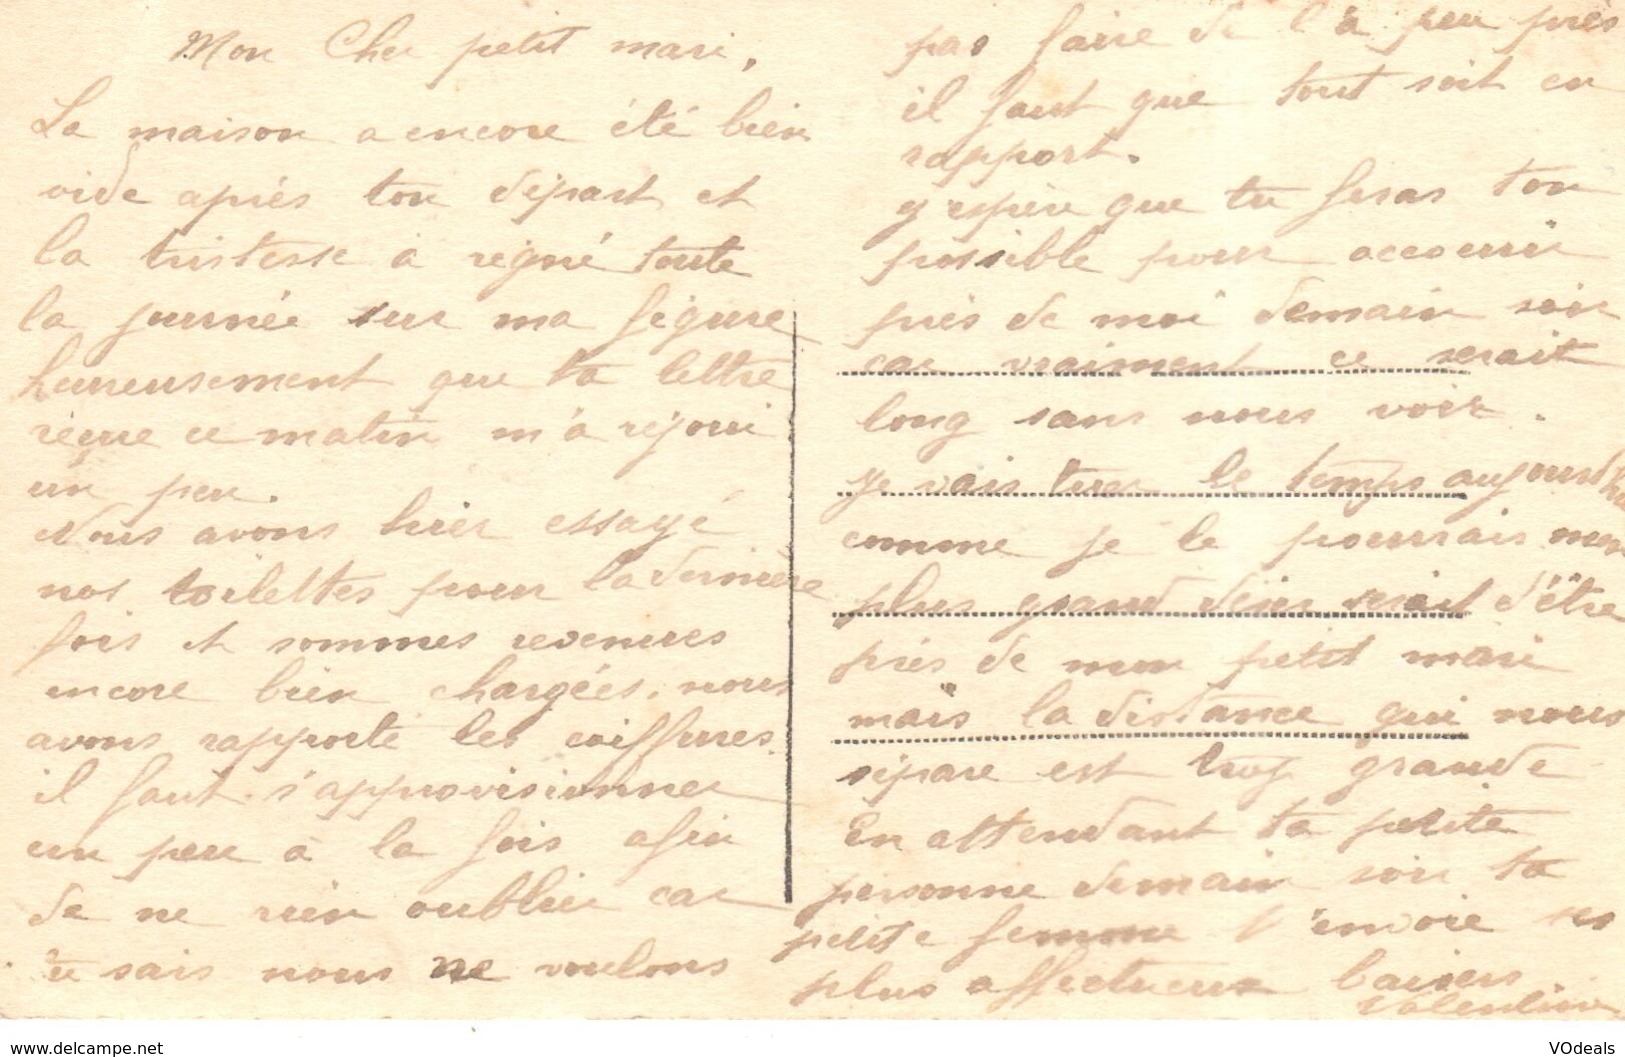 Mon Cher petit mari,
La maison a encore été bien
vide après ton départ et
la tristesse a régné toute
la journée sur ma figure
heureusement que ta lettre
reçue ce matin m'a réjoui
un peu.
Nous avons hier essayé
nos toilettes pour la dernière
fois et sommes revenues
encore bien chargées, nous
avons rapporté les coiffures.
il faut s'approvisionner
un peu à la fois afin
de ne rien oublier car
tu sais nous ne voulons
pas faire de l'à peu près
il faut que tout soit en
rapport.
J'espère que tu feras ton
possible pour accourir
près de moi demain soir
car vraiment ce serait
long sans nous voir.
Je vais tuer le temps aujourd'hui
comme je le pourrais mon
plus grand désir serait d'être
près de mon petit mari
mais la distance qui nous
sépare est trop grande
En attendant ta petite
personne demain soir ta
petite femme t'envoie ses
plus affectueux baisers
Valentine
www.delcampe.net
VOdeals